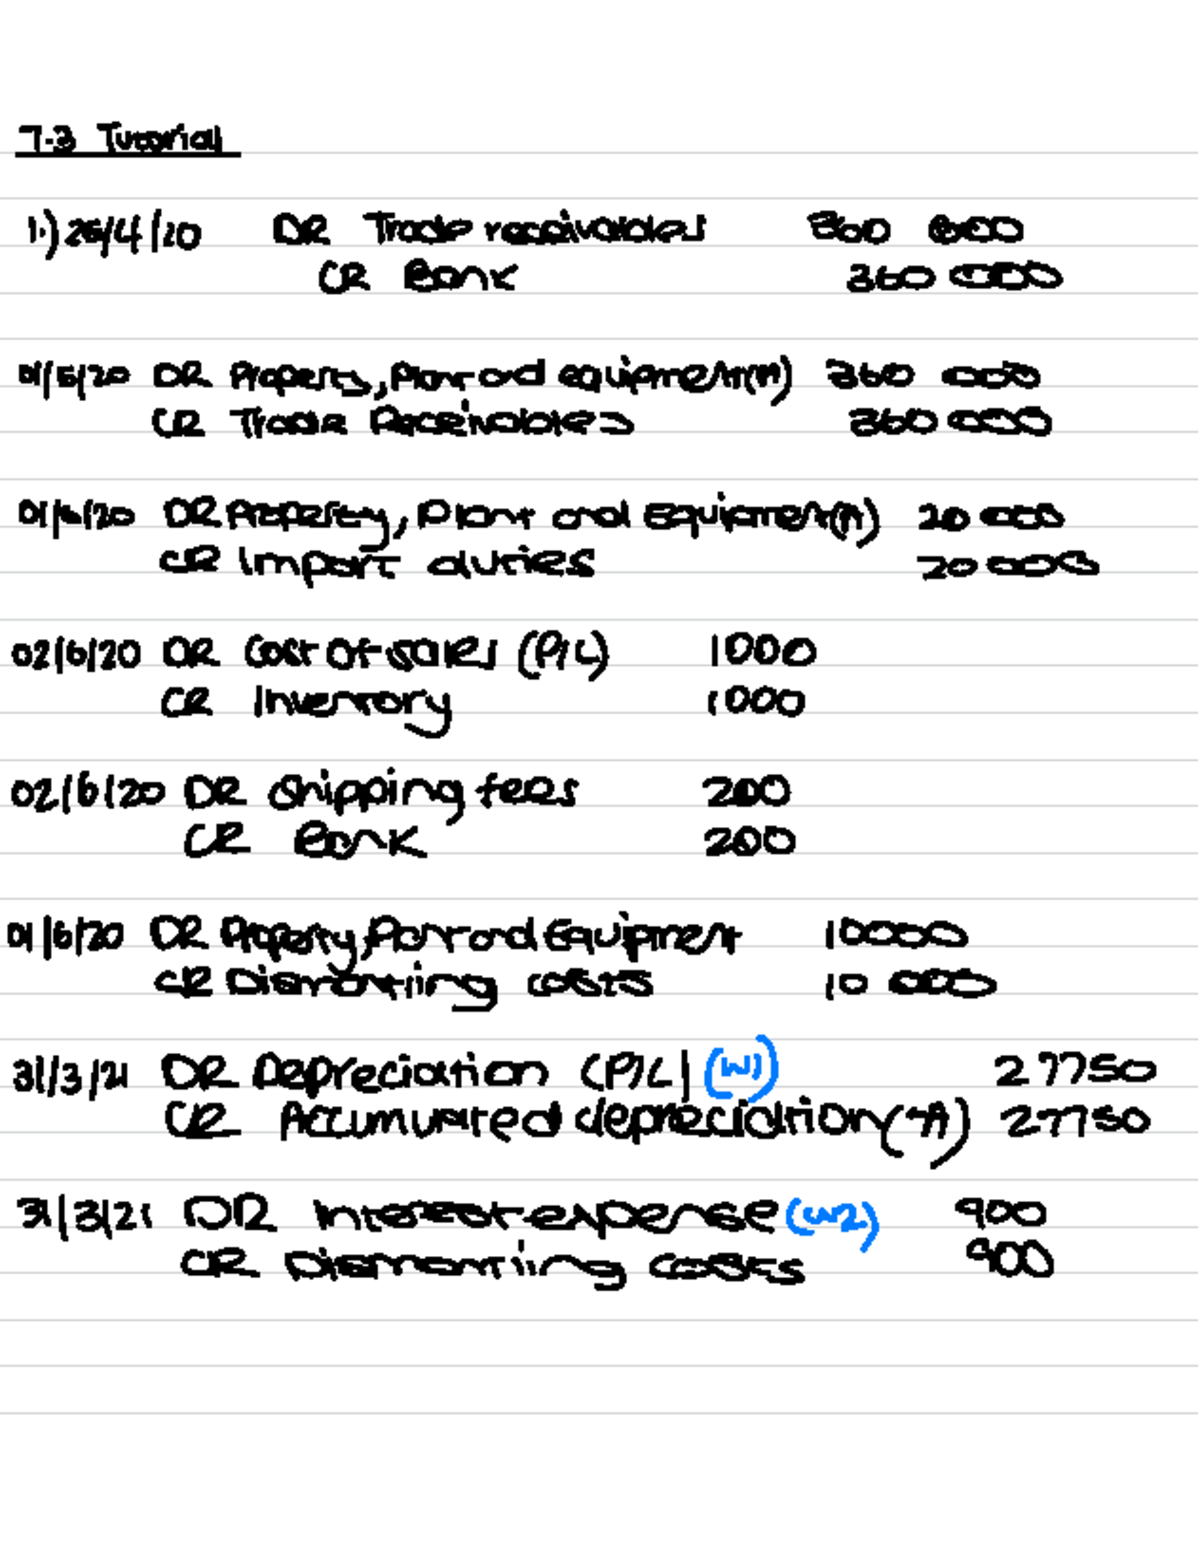 7.3 Tutorial
1.) 25/4/20 DR Trade receivables 360 000
CR Bank 360 000
01/5/20 DR Property, Plant and equipment (A) 360 000
CR Trade Receivables 360 000
01/6/20 DR Property, Plant and Equipment (A) 20 000
CR Import duties 20 000
02/6/20 DR Cost of sales (P/L) 1000
CR Inventory 1000
02/6/20 DR Shipping fees 200
CR Bank 200
01/6/20 DR Property, Plant and Equipment 10000
CR Dismantling costs 10 000
31/3/21 DR Depreciation (P/L) (W1) 27750
CR Accumulated depreciation (-A) 27750
31/3/21 DR Interest expense (W2) 900
CR Dismantling costs 900